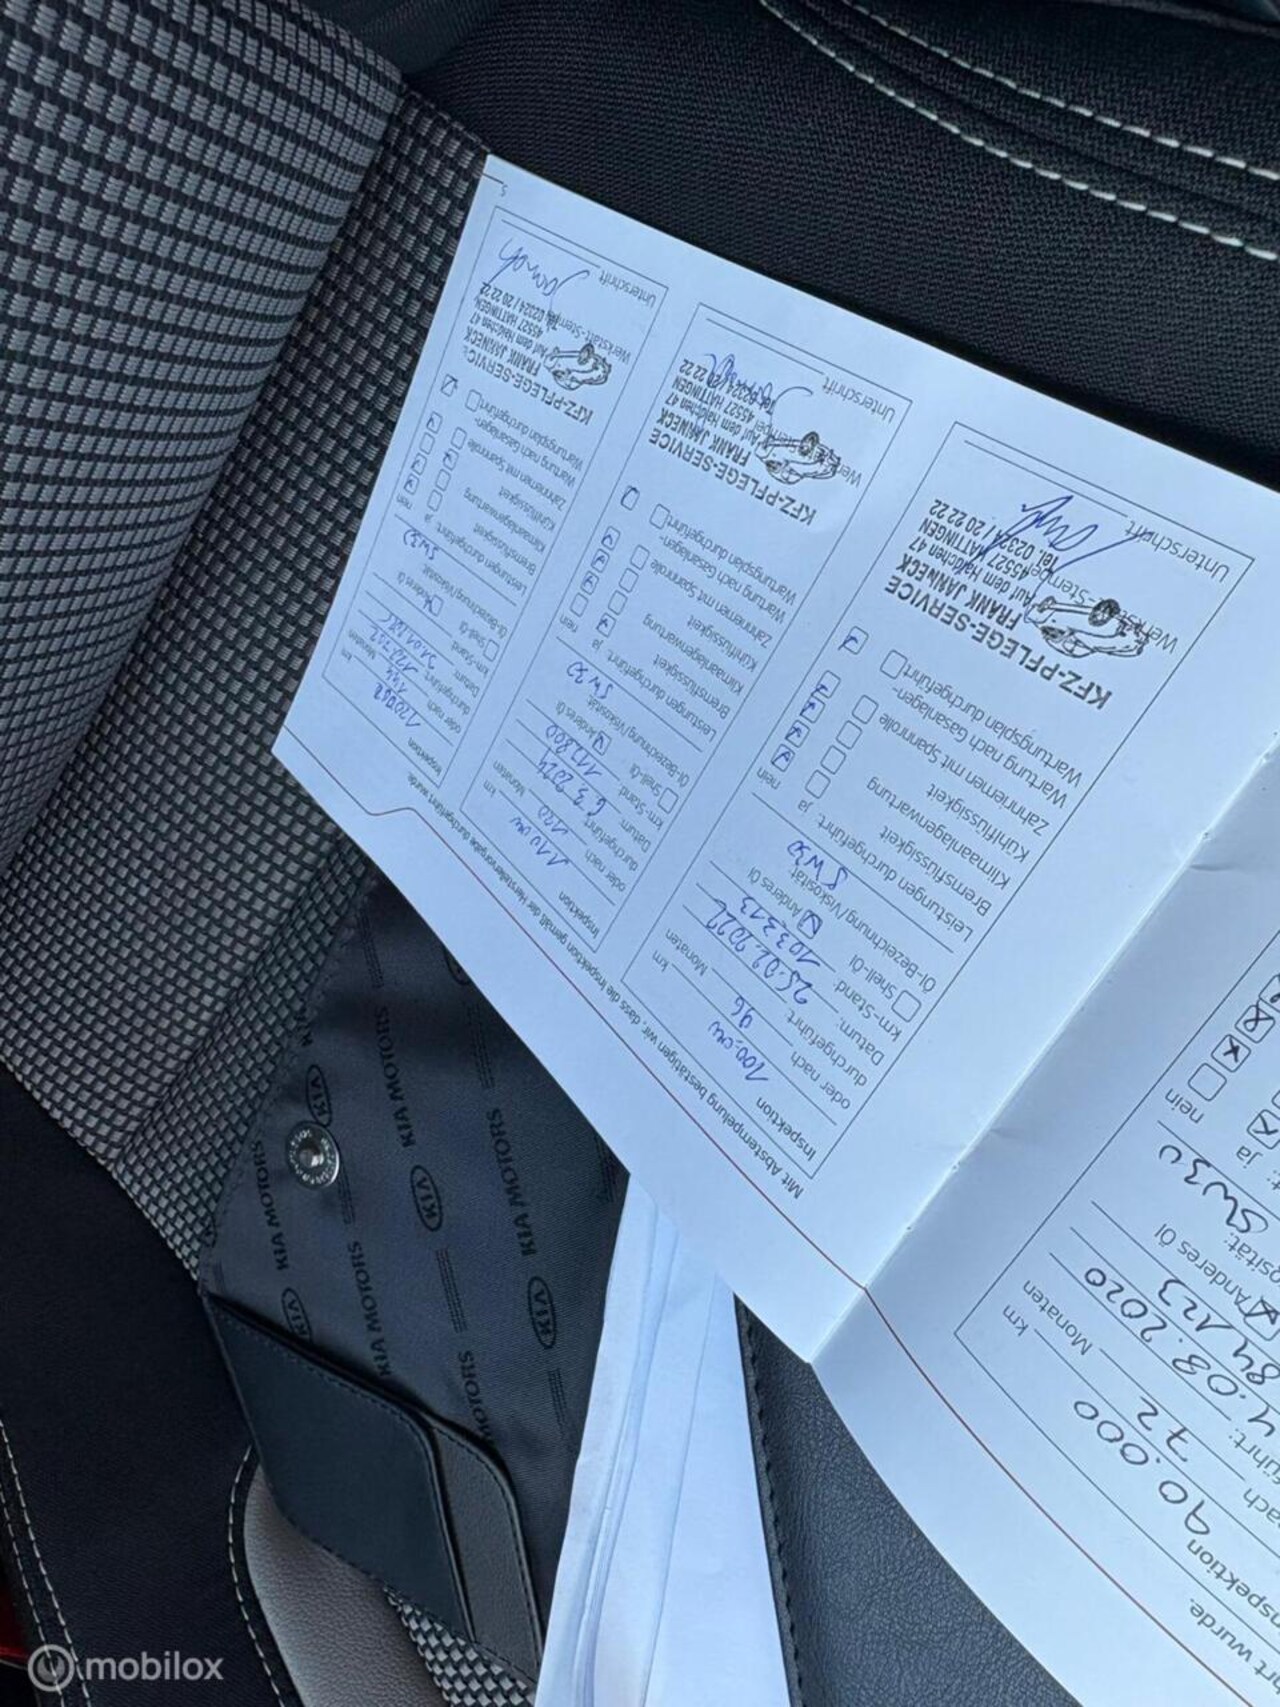 Mit Abstempelung bestätigen wir, dass die Inspektion gemäß der Herstellervorgabe durchgeführt wurde.
Inspektion 100.000 km
oder nach 96 Monaten
durchgeführt:
Datum: 25.02.2022
km-Stand: 103313
Shell-Öl Anderes Öl
Öl-Bezeichnung/Viskosität: 5W30
Leistungen durchgeführt: ja nein
Bremsflüssigkeit
Klimaanlagenwartung
Kühlflüssigkeit
Zahnriemen mit Spannrolle
Wartung nach Gasanlagen-
Wartungsplan durchgeführt:
KFZ-PFLEGE-SERVICE
FRANK JANNECK
Auf dem Haidchen 47
45527 HATTINGEN
Tel. 02324 / 20 22 22
Unterschrift
Inspektion km
oder nach 120 Monaten
durchgeführt:
Datum: 6.3.2024
km-Stand:
Shell-Öl Anderes Öl
Öl-Bezeichnung/Viskosität: 5W30
Leistungen durchgeführt: ja nein
Bremsflüssigkeit
Klimaanlagenwartung
Kühlflüssigkeit
Zahnriemen mit Spannrolle
Wartung nach Gasanlagen-
Wartungsplan durchgeführt:
KFZ-PFLEGE-SERVICE
FRANK JANNECK
Auf dem Haidchen 47
45527 HATTINGEN
Tel. 02324 / 20 22 22
Unterschrift
Inspektion km
oder nach 144 Monaten
durchgeführt:
Datum:
km-Stand:
Shell-Öl Anderes Öl
Öl-Bezeichnung/Viskosität: 5W30
Leistungen durchgeführt: ja nein
Bremsflüssigkeit
Klimaanlagenwartung
Kühlflüssigkeit
Zahnriemen mit Spannrolle
Wartung nach Gasanlagen-
Wartungsplan durchgeführt:
KFZ-PFLEGE-SERVICE
FRANK JANNECK
Auf dem Haidchen 47
45527 HATTINGEN
Tel. 02324 / 20 22 22
Werkstatt-Stempel
Unterschrift
5
wurde.
90.000 km
72 Monaten
.03.2020
84123
Anderes Öl
5W30
ja nein
KIA MOTORS
KIA MOTORS
KIA MOTORS
KIA MOTORS
mobilox